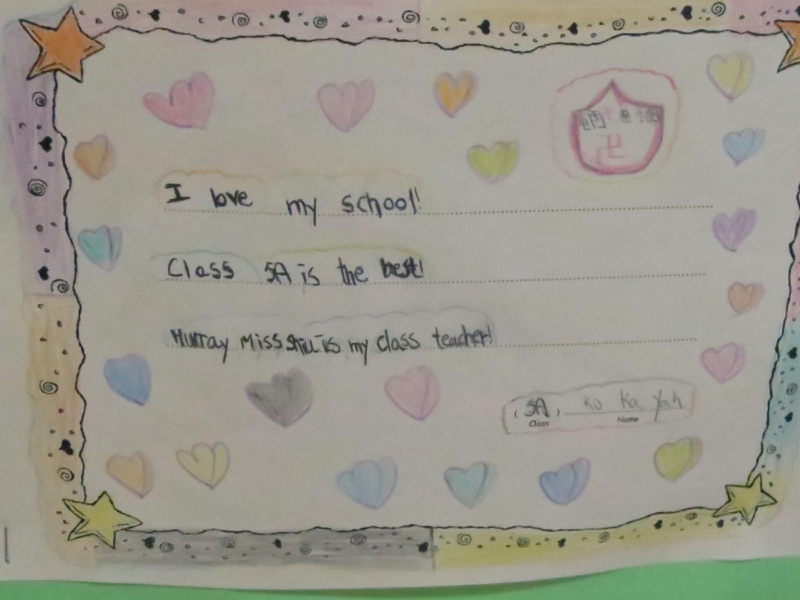 I love my school!
Class 5A is the best!
Hurray Miss Shu is my class teacher!
(5A) Ko Ka Yan
Class Name